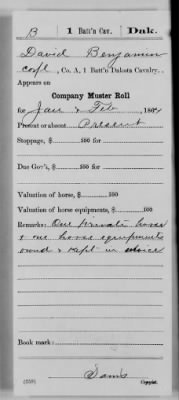 B 1 Batt'n Cav. Dak.
David Benjamin
Corpl, Co. A, 1 Batt'n Dakota Cavalry.
Appears on
Company Muster Roll
for Jan & Feb, 1864
Present or absent Present
Stoppage, $ 100 for
Due Gov't, $ 100 for
Valuation of horse, $ 100
Valuation of horse equipments, $ 100
Remarks: One private horse
& one horse equipments
owned & kept in service
Book mark:
(858) Copyist.